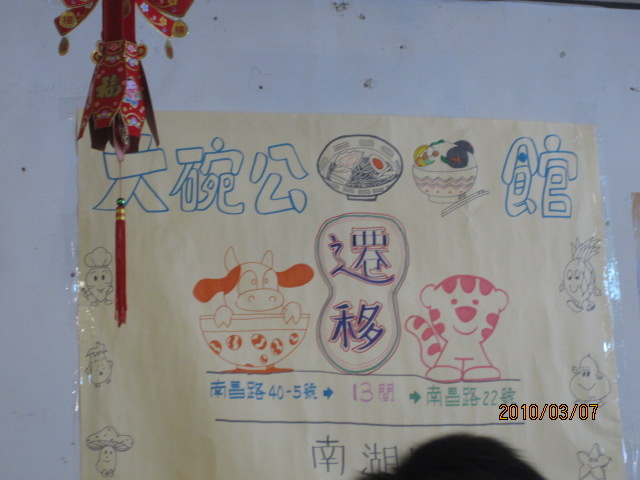 福
六碗公 館
遷移
南昌路40-5號➡13間➡南昌路22號
2010/03/07
南湖